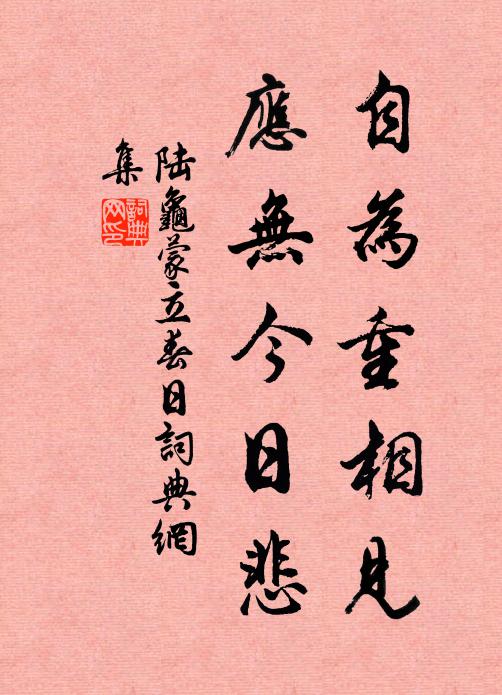 自為重相見
應無今日悲
陸龜蒙立春日詞典網
集
詞典
网印